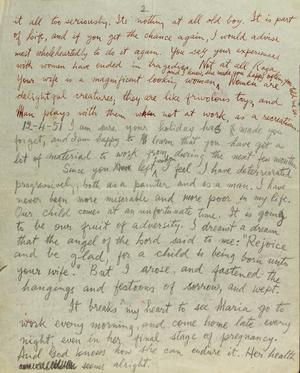 2
it all too seriously. Its nothing at all old boy. It is part
of life, and if you get the chance again, I would advise
most wholeheartedly to do it again. You say your experiences
with women have ended in tragedies. Not at all Raja.
Your wife is a magnificent looking woman. Women are
and I know, she make you happy again, you
delightful creatures, they are like frivolous toys and
Man plays with them when not at work, as a recreation.
12-4-51 I am sure your holiday has made you
forget, and I am happy to learn that you have got a
lot of material to work from during the next few months.
Since you left, I feel I have deteriorated
progressively, both as a painter and as a man. I have
never been more miserable and more poor in my life.
Our child comes at an unfortunate time. It is going
to be our fruit of adversity. I dreamt a dream
that the angel of the Lord said to me: "Rejoice
and be glad, for a child is being born unto
your wife." But I arose, and fastened the
hangings and festoons of sorrow, and wept.
It breaks my heart to see Maria go to
work every morning, and come home late every
night, even in her final stage of pregnancy.
And God knows how she can endure it. Her health
seems alright.